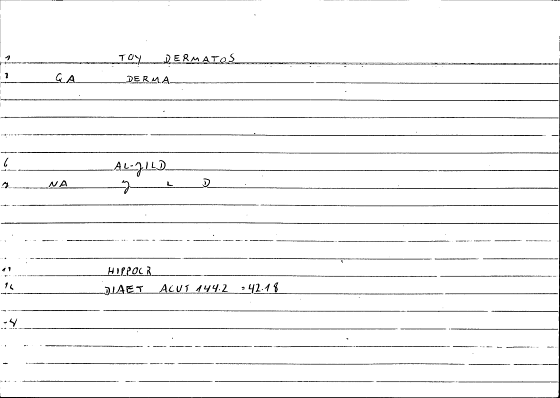 1 TOY DERMATOS
2 GA DERMA
6 AL-JILD
7 NA J L D
11 HIPPOCR
12 DIAET ACUT 144.2 =42.18